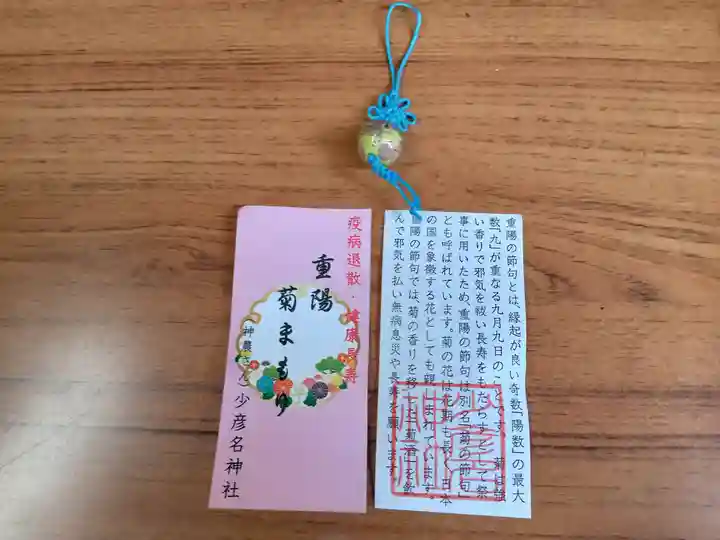 疫病退散・健康長寿
重陽
菊まもり
(神農さん) 少彦名神社
重陽の節句とは、縁起が良い奇数「陽数」の最大
数、「九」が重なる九月九日のことです。菊は強
い香りで邪気を祓い長寿をもたらすとして祭
事に用いたため、重陽の節句は別名「菊の節句」
とも呼ばれています。菊の花は花期も長く日本
の国を象徴する花としても親しまれています。
重陽の節句では、菊の香りを移した「菊酒」を飲
んで邪気を払い無病息災や長寿を願います。